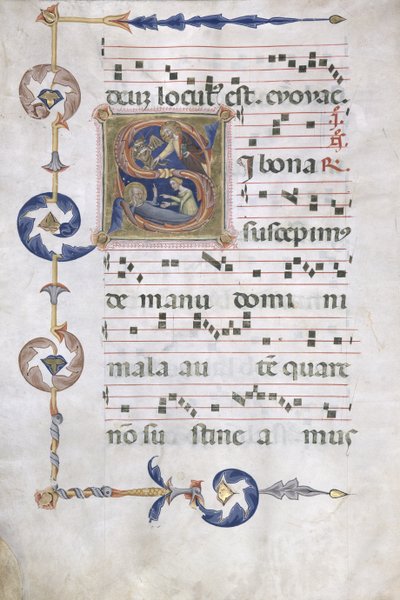 deuz locutꝰ est. evovae.
SI bona R.
suscepimꝰ
de manu domi ni
mala au tē quare
nō su stine a mus